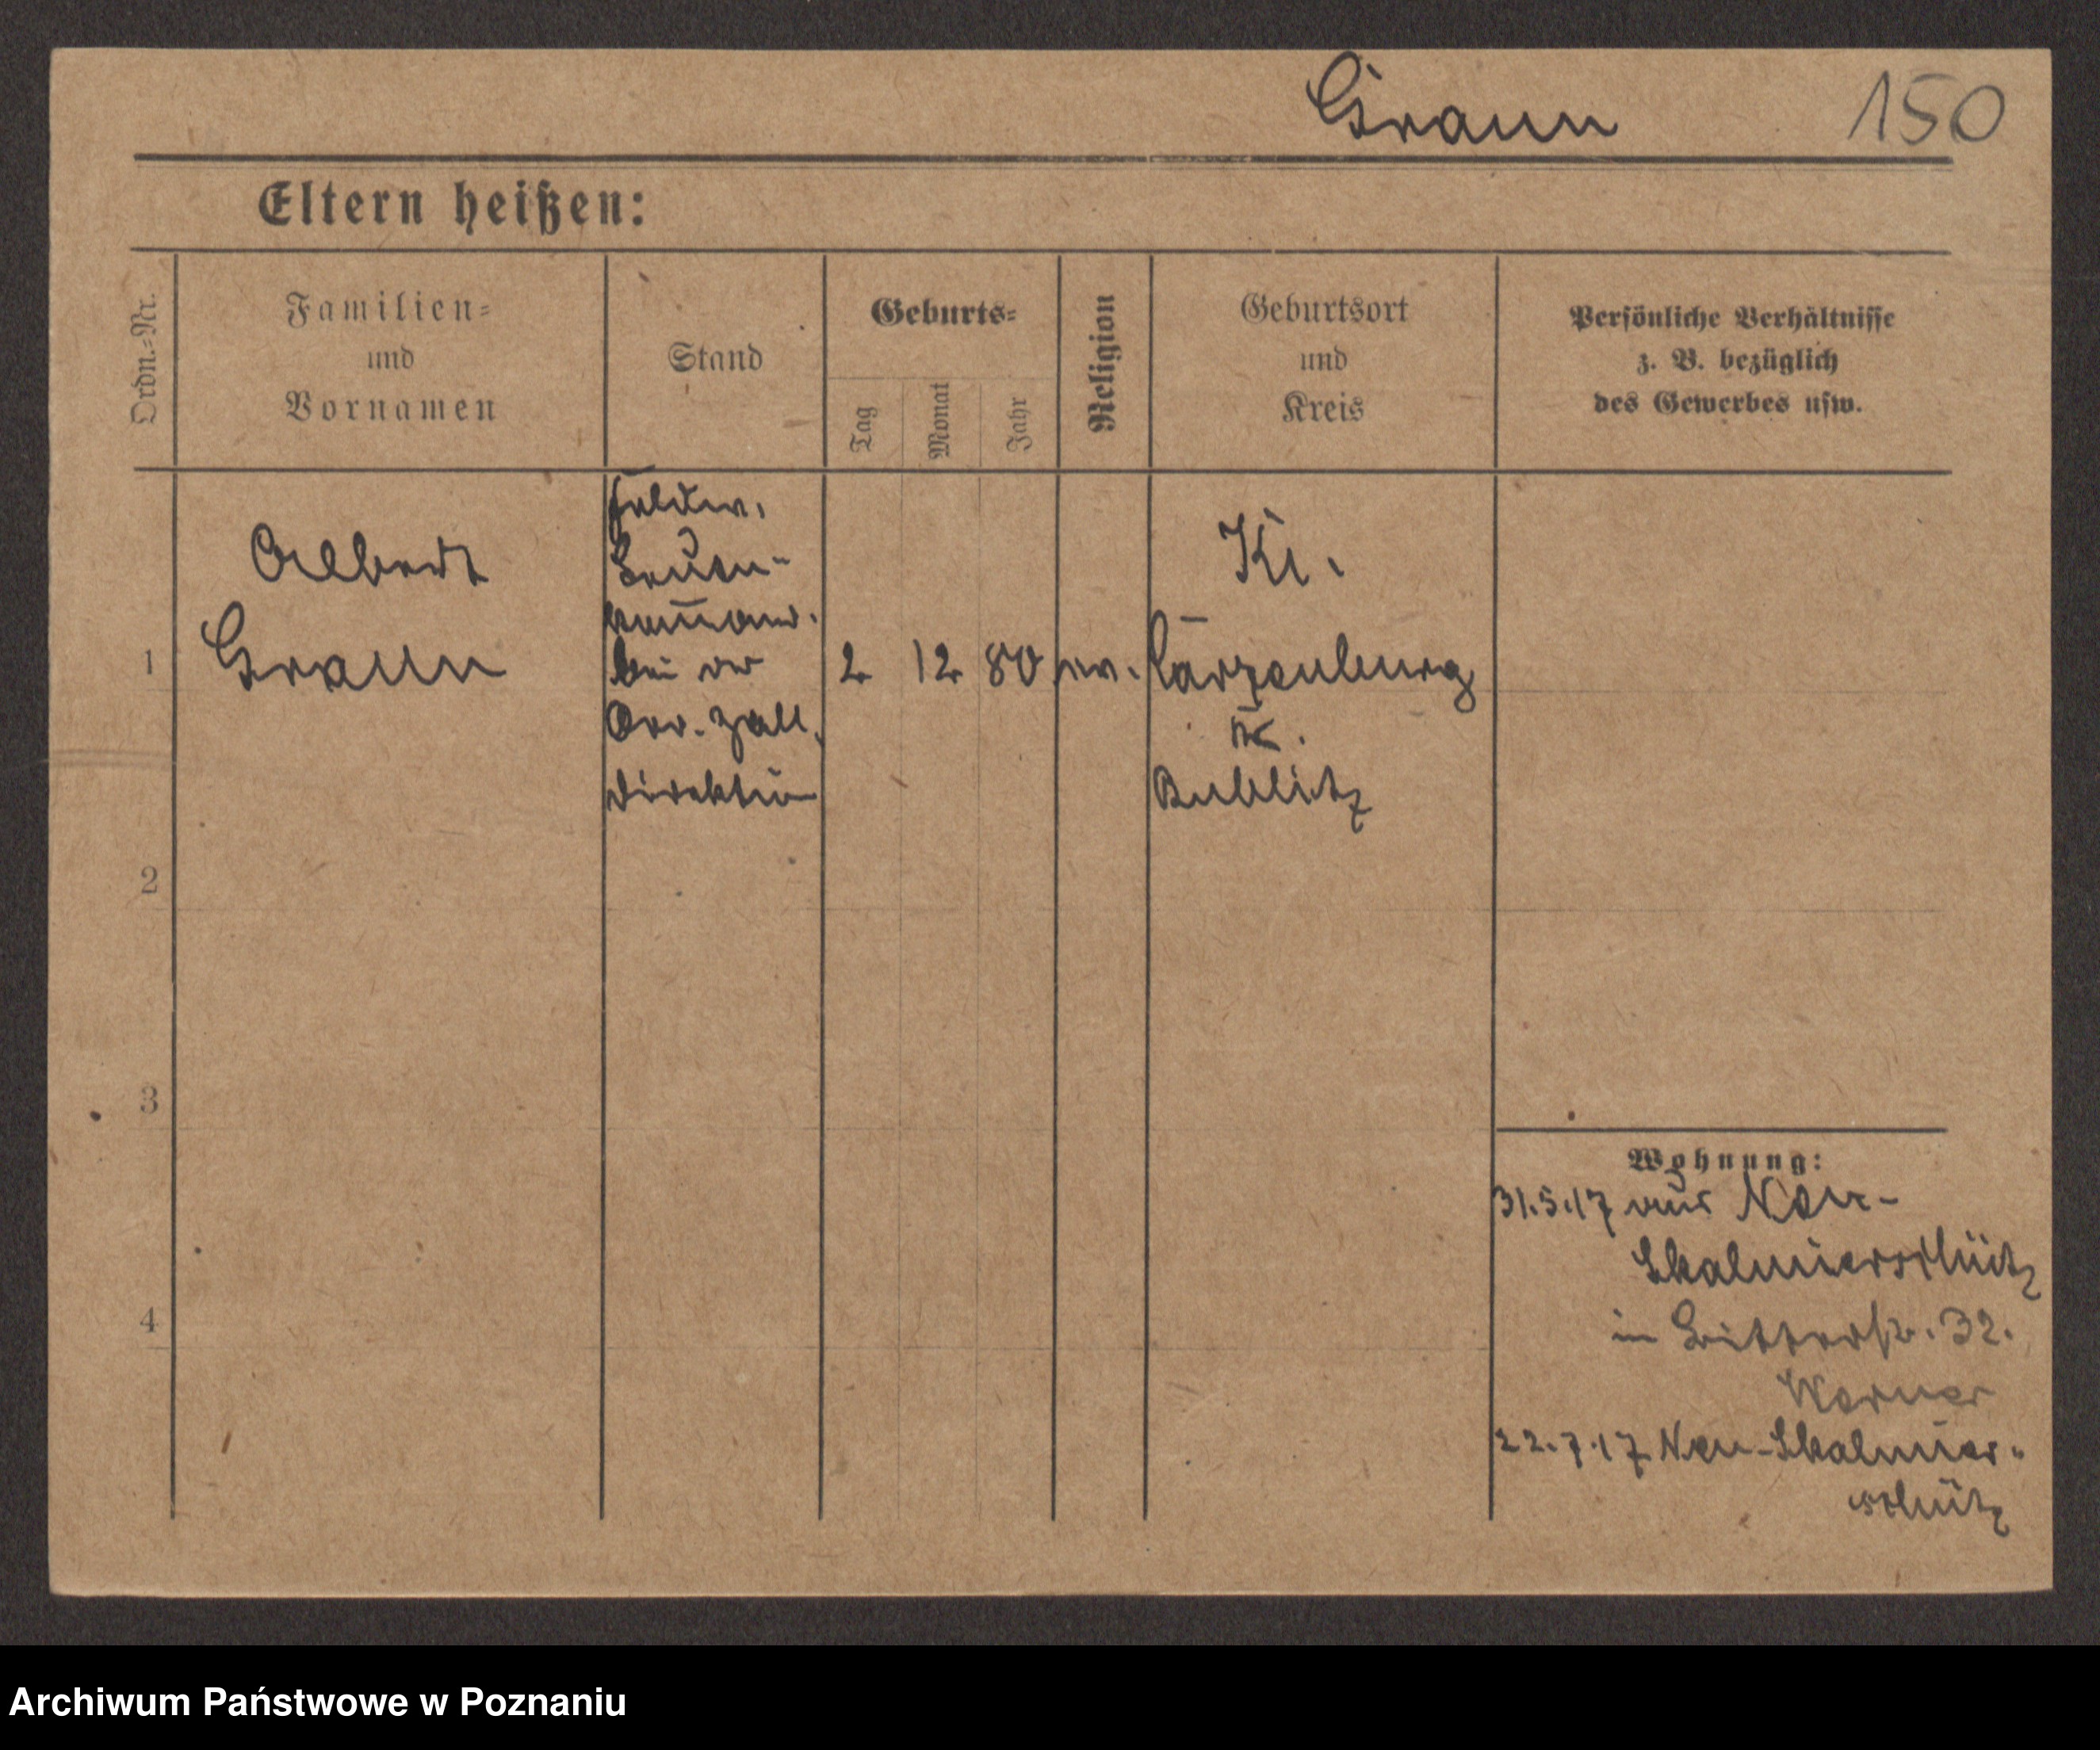 Graun 150
Eltern heißen:
Ordn.=Nr.
Familien=
und
Vornamen
Stand
Geburts=
Tag
Monat
Jahr
Religion
Geburtsort
und
Kreis
Persönliche Verhältnisse
z. B. bezüglich
des Gewerbes usw.
1
Albert
Graun
Feldw.
bei der
Ovr. Zoll.
direktion
2 12 80 ev.
Kl.
Carzenburg
Kr.
Bublitz
2
3
4
Wohnung:
31.5.17 aus Neu-
Skalmierschütz
in Bitterstr. 32.
Werner
22.7.17 Neu-Skalmier-
schütz
Archiwum Państwowe w Poznaniu